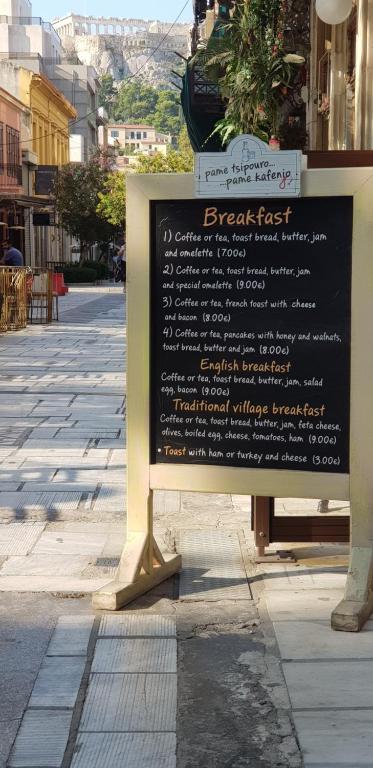 pame tsipouro...
...pame kafenjo
Breakfast
1) Coffee or tea, toast bread, butter, jam
and omelette (7.00€)
2) Coffee or tea, toast bread, butter, jam
and special omelette (9.00€)
3) Coffee or tea, french toast with cheese
and bacon (8.00€)
4) Coffee or tea, pancakes with honey and walnats,
toast bread, butter and jam (8.00€)
English breakfast
Coffee or tea, toast bread, butter, jam, salad
egg, bacon (9.00€)
Traditional village breakfast
Coffee or tea, toast bread, butter, jam, feta cheese,
olives, boiled egg, cheese, tomatoes, ham (9.00€)
• Toast with ham or turkey and cheese (3.00€)